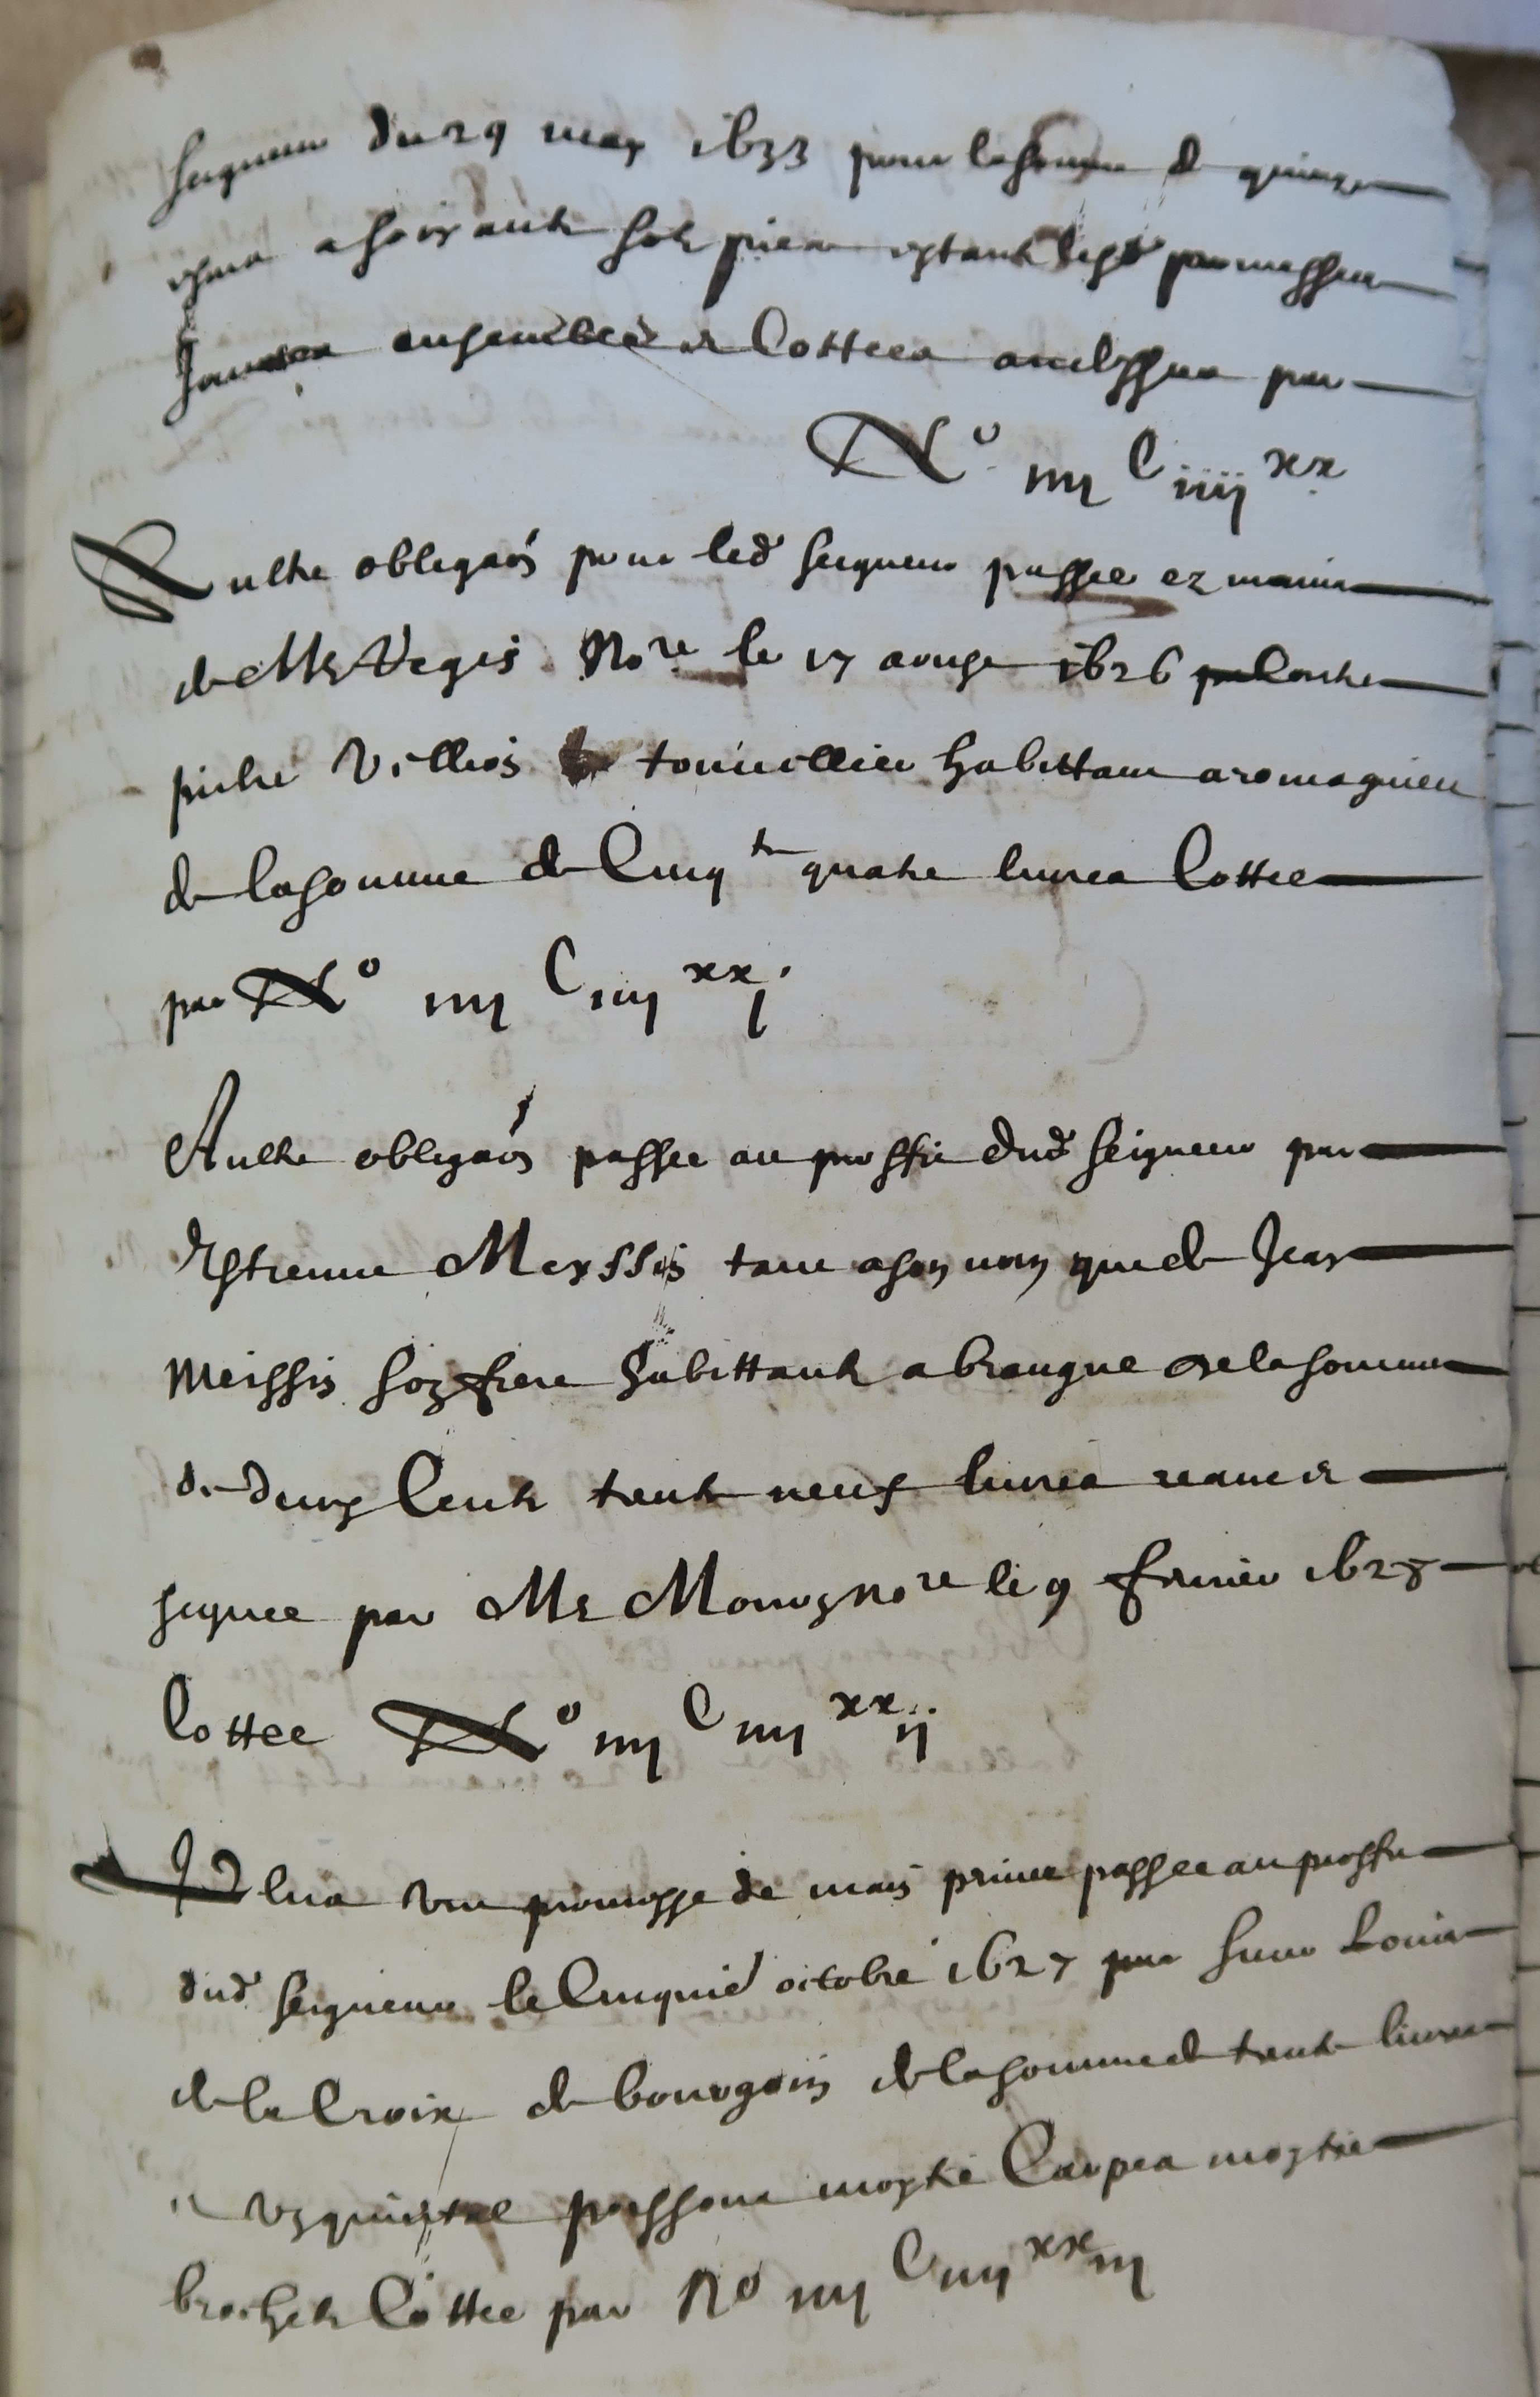 seigneur du 29 may 1633 pour la somme de quinze
escus a soixante solz piece estant lesd promesses
jointes ensemble et cottees au dessus par
No iiii C iiii xx
Aultre obligaon pour led seigneur passee ez mains
de Me Vegis Nore le 17 1626 contre
pierre Villiois tonnellier habittant a romagnieu
de la somme de Cinqte quatre livres Cottee
par No iiii C iiii xx j
Aultre obligaon passee au proffit dud seigneur par
Estienne Meyssin tant a son nom que de Jean
Meissin son frere habittantz a brangue de la somme
de deux Centz trente neuf livres receue et
signee par Me Nore le 9 febvrier 1628
Cottee No iiii C iiii xx ij
Plus une promesse de main privee passee au proffit
dud seigneur le Cinquie octobre 1627 par sieur Louis
de la Croix de bourgoin de la somme de trente livres
et ung quintal poissons moytié Carpes moytié
brochetz Cottee par No iiii C iiii xx iii